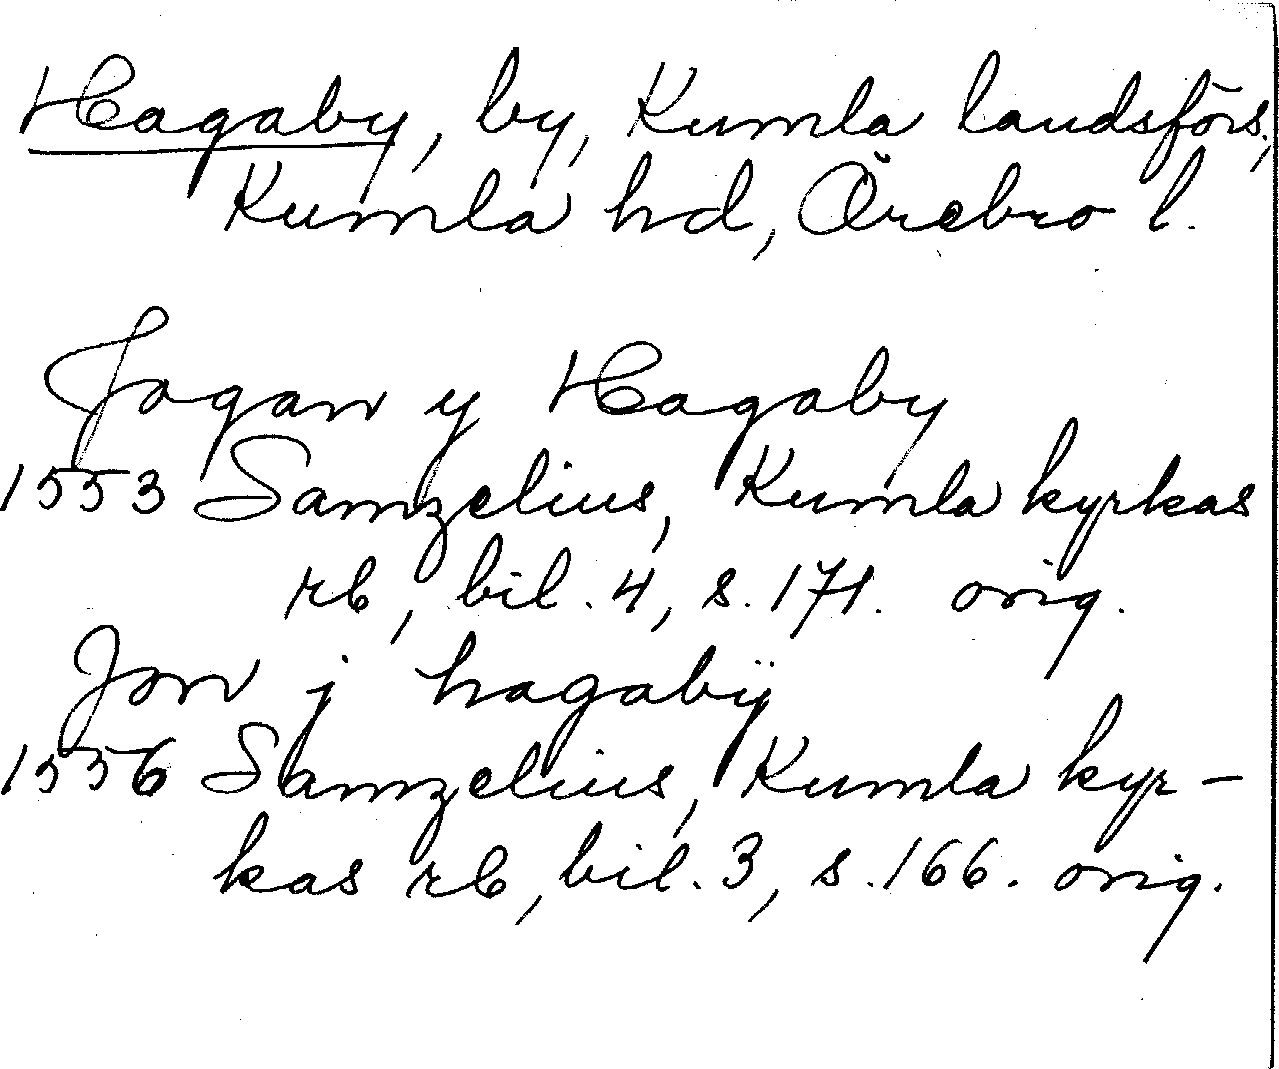 Hagaby, by, Kumla landsförs.,
Kumla hd, Örebro l.
Jogan y Hagaby
1553 Samzelius, Kumla kyrkas
rb, bil. 4, s. 171. orig.
Jon j hagabÿ
1556 Samzelius, Kumla kyr-
kas rb, bil. 3, s. 166. orig.